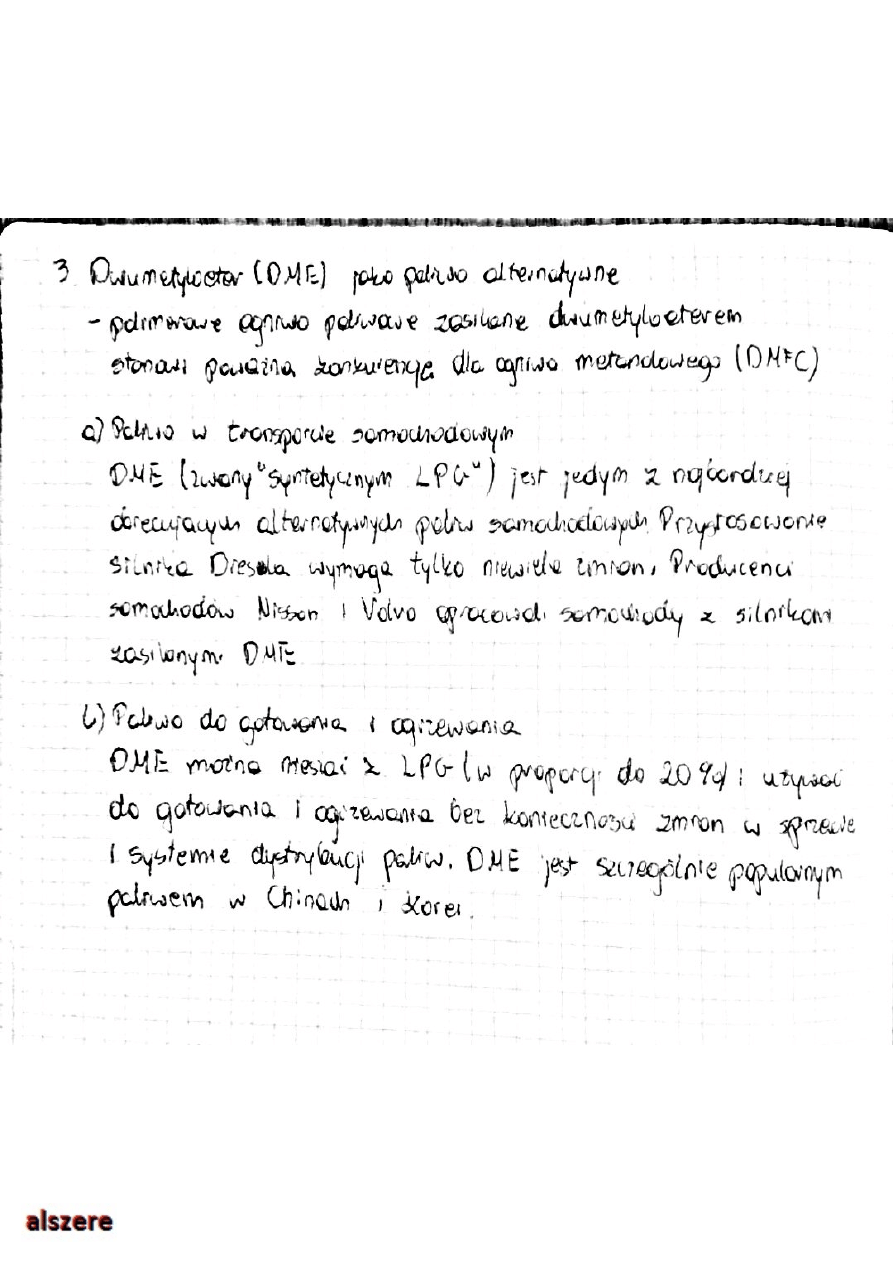 3 Dwumetyloeter (DME) jako paliwo alternatywne
- polimerowe ogniwo paliwowe zasilane dwumetyloeterem
stanowi poważną konkurencję dla ogniwa metanolowego (DMFC)
a) Paliwo w transporcie samochodowym
DME (zwany "syntetycznym LPG") jest jedym z najbardziej
obiecujących alternatywnych paliw samochodowych. Przystosowanie
silnika Diesela wymaga tylko niewiele zmian. Producenci
samochodów Nissan i Volvo opracowali samochody z silnikami
zasilanymi DME
b) Paliwo do gotowania i ogrzewania
DME można mieszać z LPG (w proporcji do 20%) i używać
do gotowania i ogrzewania bez konieczności zmian w sprzęcie
i systemie dystrybucji paliw. DME jest szczególnie popularnym
paliwem w Chinach i Korei.
alszere